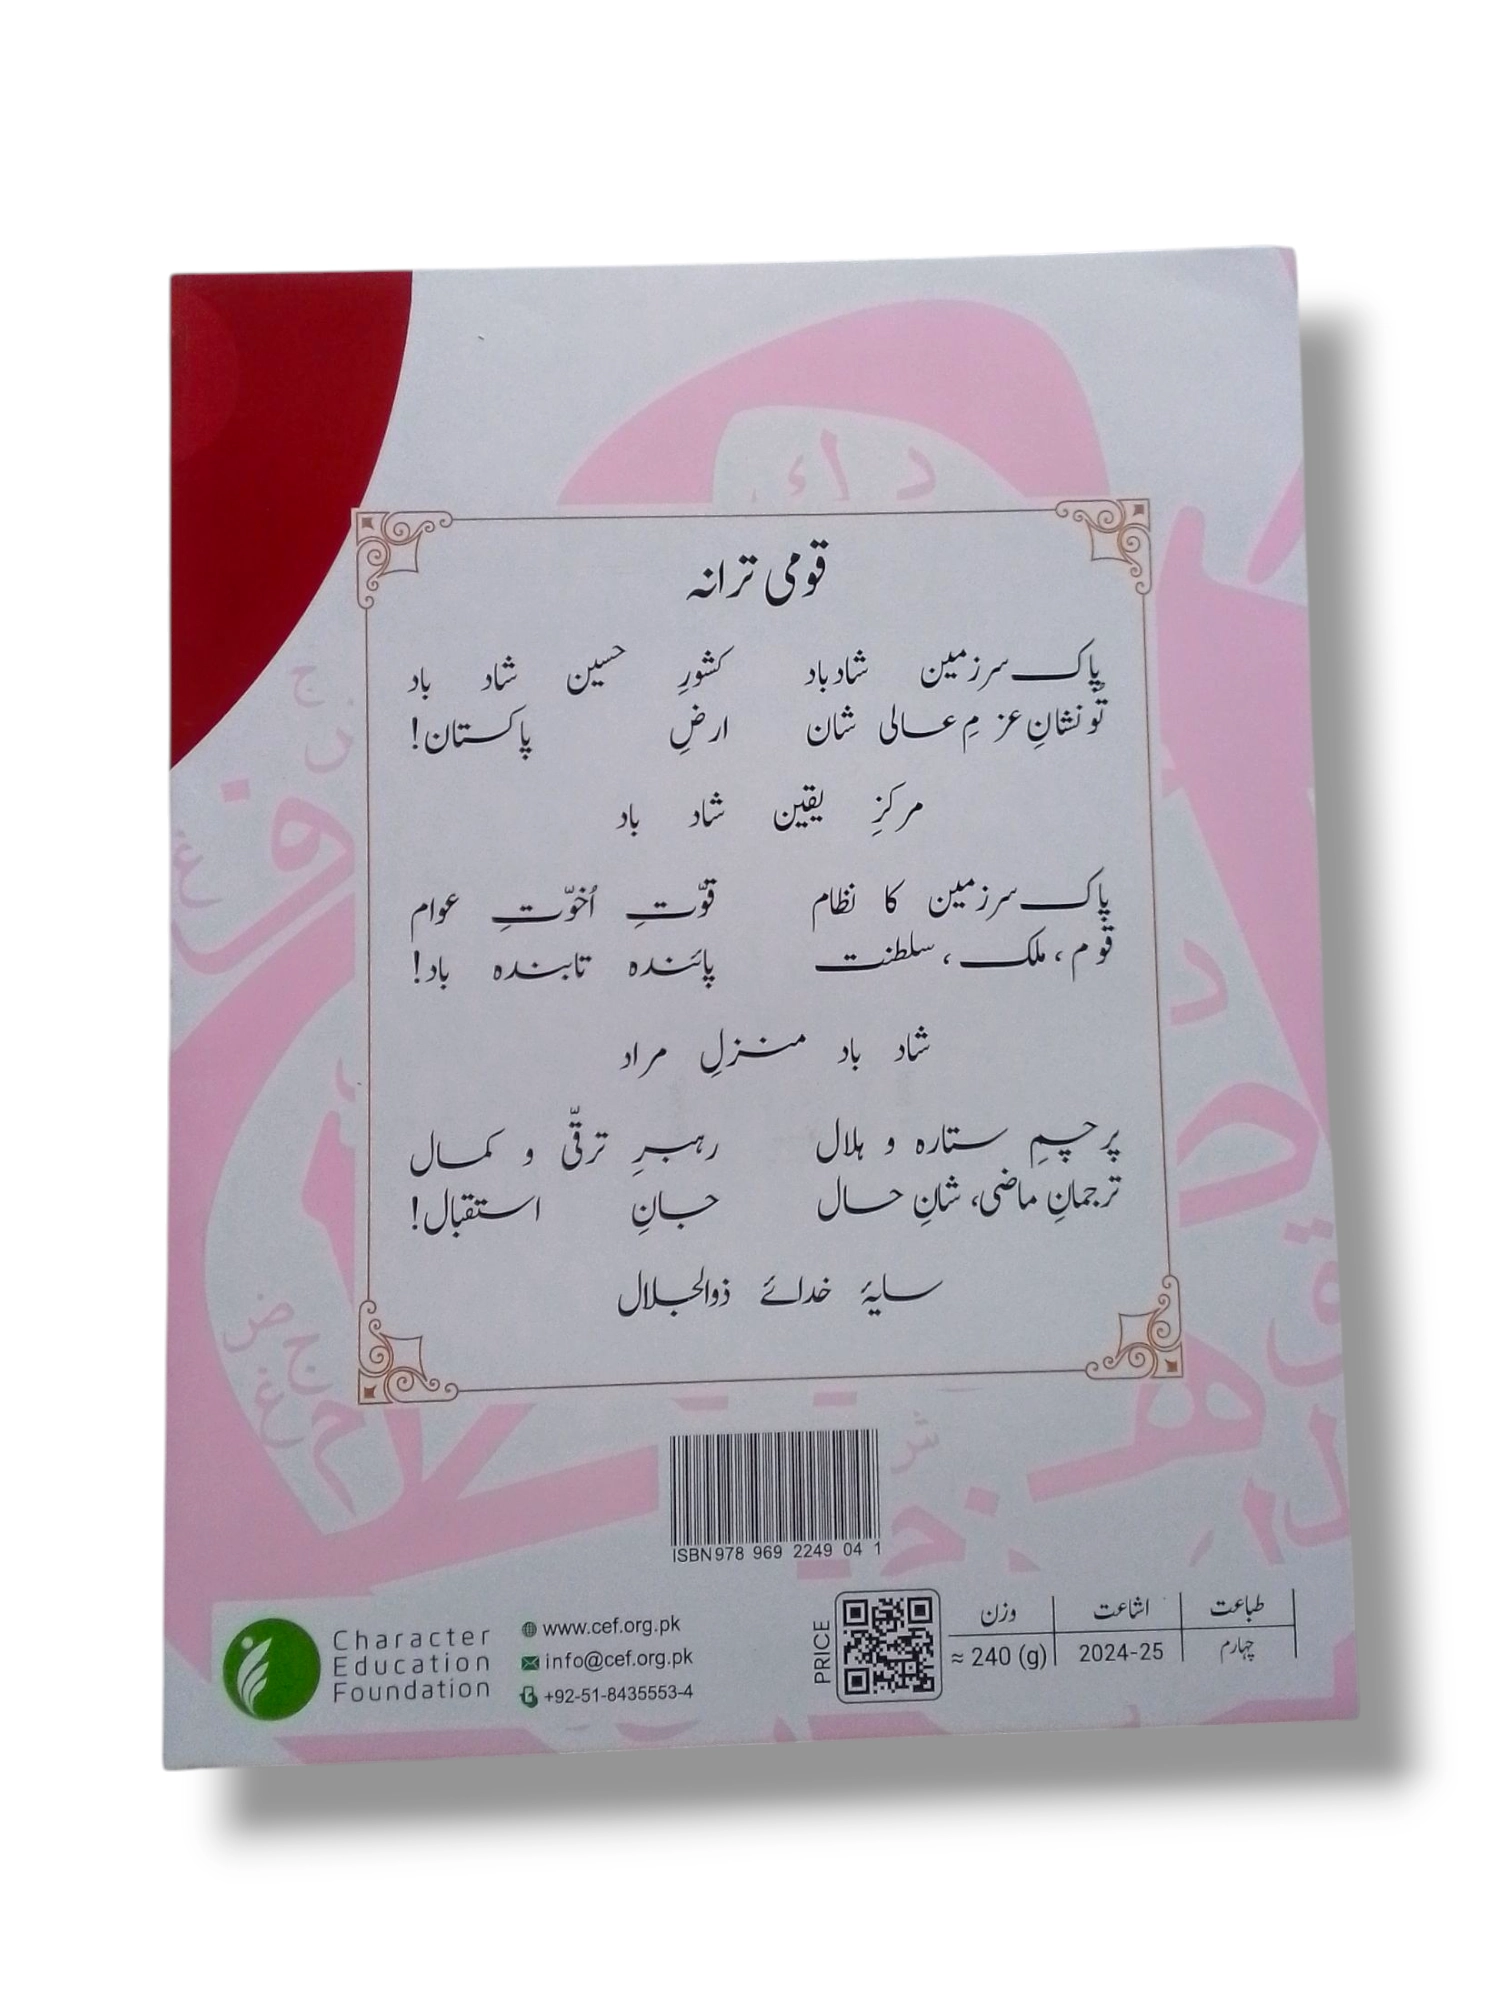 قومی ترانہ
پاک سرزمین شاد باد کشورِ حسین شاد باد
تُو نشانِ عزمِ عالی شان ارضِ پاکستان!
مرکزِ یقین شاد باد
پاک سرزمین کا نظام قوّتِ اُخوّتِ عوام
قوم، ملک، سلطنت پائندہ تابندہ باد!
شاد باد منزلِ مراد
پرچمِ ستارہ و ہلال رہبرِ ترقّی و کمال
ترجمانِ ماضی، شانِ حال جانِ استقبال!
سایۂ خدائے ذوالجلال
ISBN 978 969 2249 04 1
Character
Education
Foundation
www.cef.org.pk
info@cef.org.pk
+92-51-8435553-4
PRICE
طباعت اشاعت وزن
چہارم 2024-25 ≈ 240 (g)